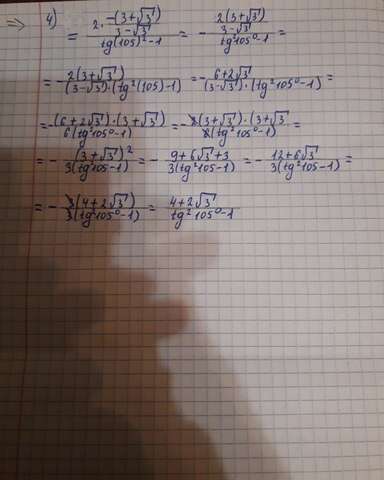 => 4) = (2 · (-(3+√3))/(3-√3))/(tg(105)²-1) = - (2(3+√3)/(3-√3))/(tg²105°-1) =
= - 2(3+√3)/((3-√3)·(tg²(105)-1)) = - (6+2√3)/((3-√3)·(tg²105°-1)) =
= - ((6+2√3)·(3+√3))/(6(tg²105°-1)) = - (2(3+√3)·(3+√3)/(2(tg²105°-1)) =
= - (3+√3)²/(3(tg²105-1)) = - (9+6√3+3)/(3(tg²105-1)) = - (12+6√3)/(3(tg²105-1)) =
= - 3(4+2√3)/(3(tg²105°-1)) = (4+2√3)/(tg²105°-1)